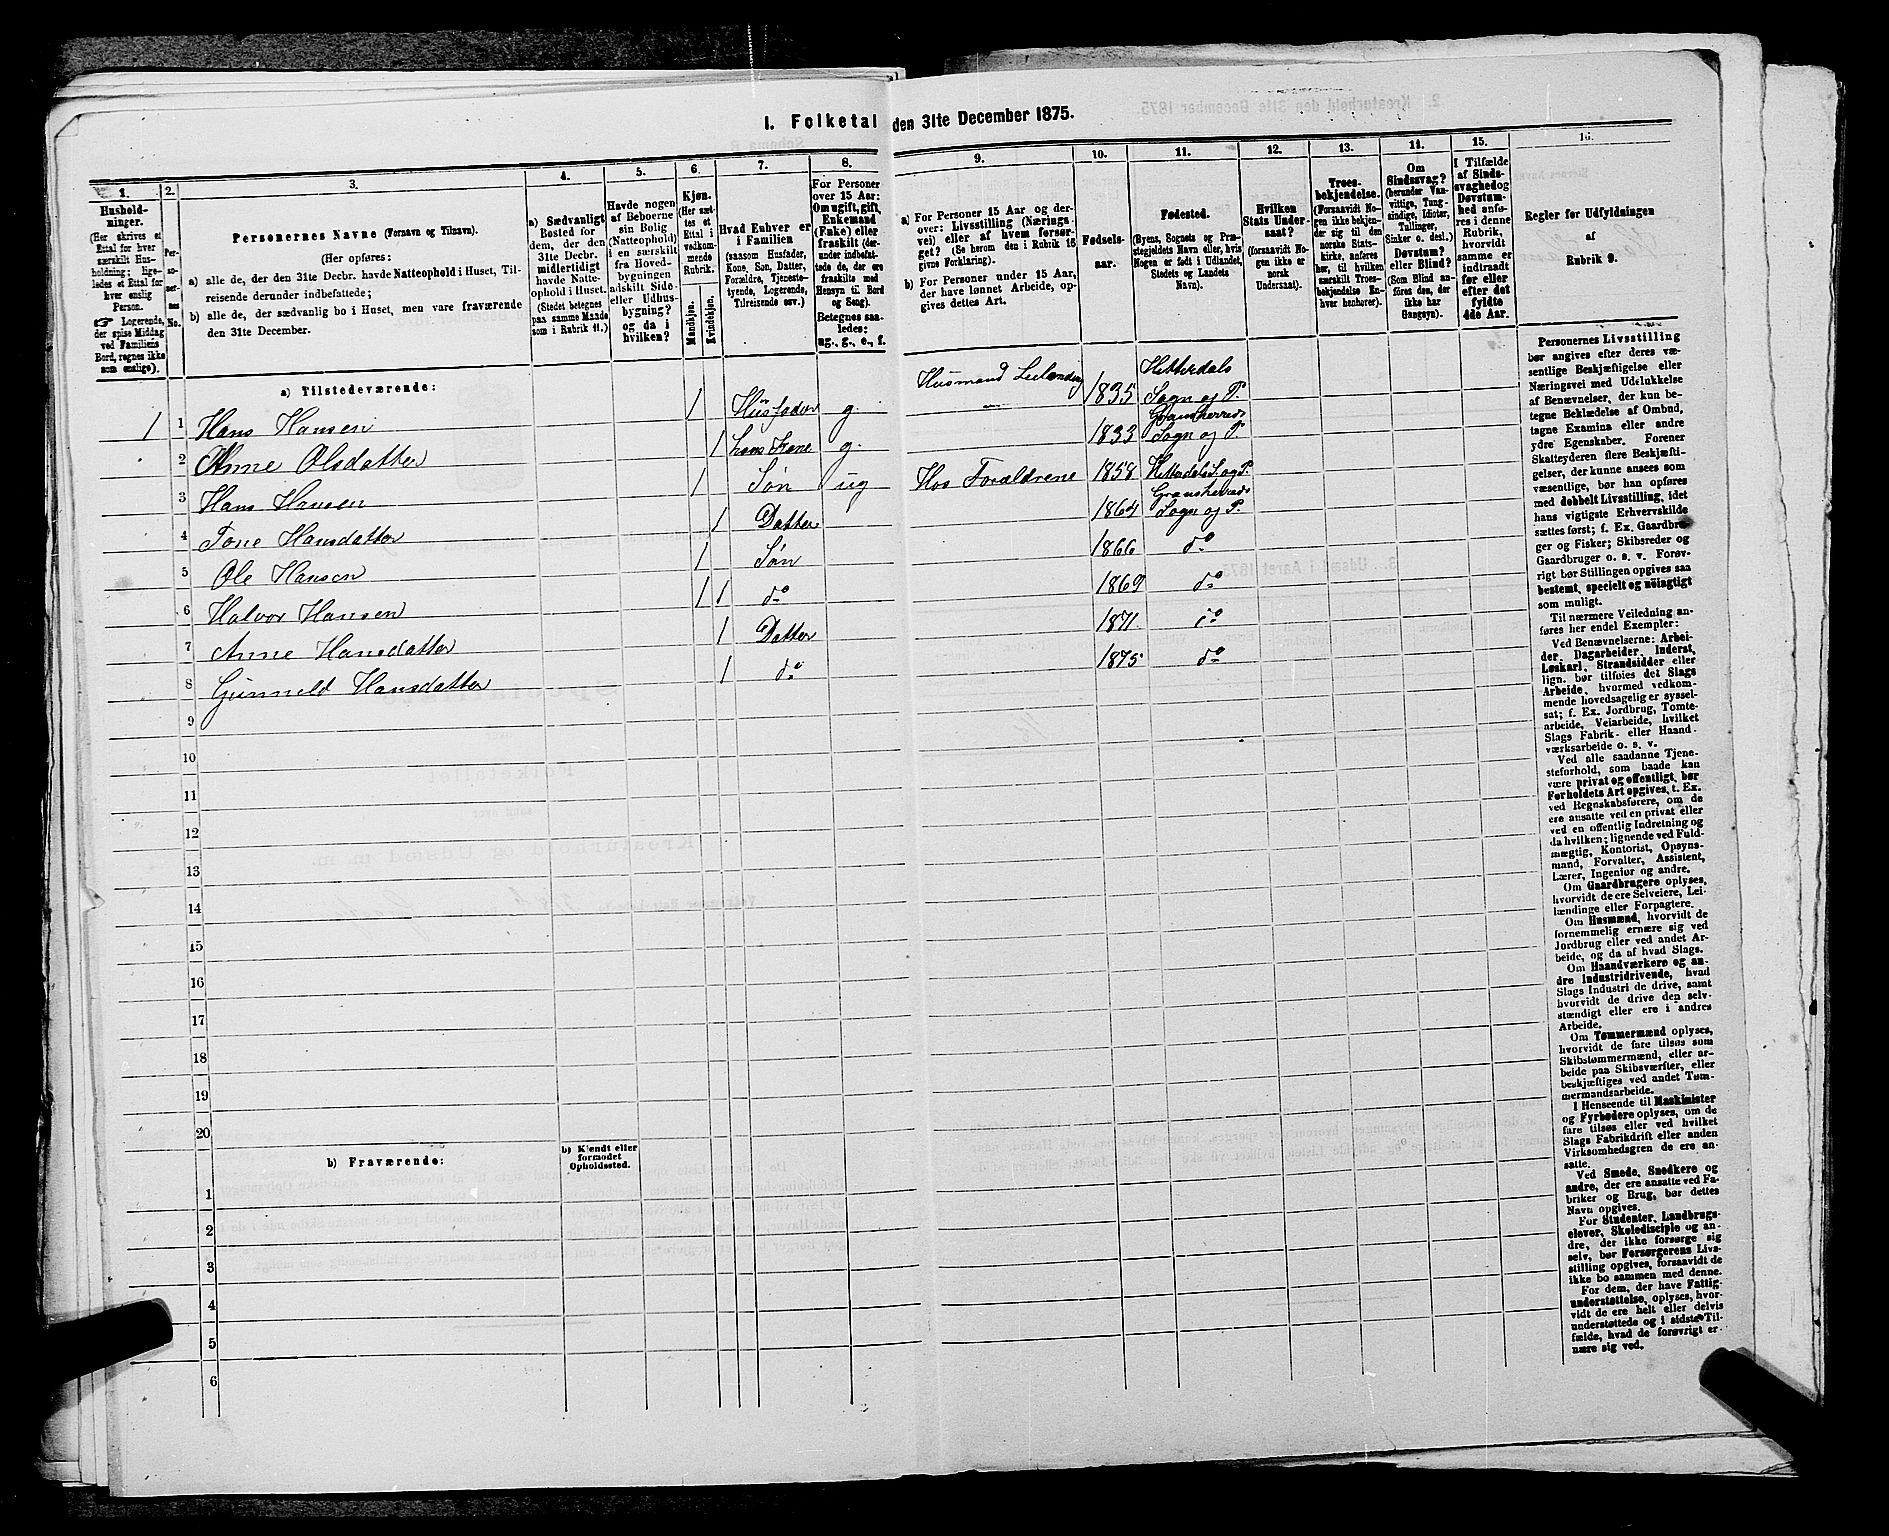 I. Folketal den 31te December 1875.
1. 2. 3. 4. 5. 6. 7. 8. 9. 10. 11. 12. 13. 14. 15. 16.
Hushold-
ninger.
(Her skrives et
Ettal for hver
særskilt Hus-
holdning; lige-
ledes et Ettal for
hver enslig
Person.
☞ Logerende,
der spise Middag
ved Familiens
Bord, regnes ikke
som enslige).
Per-
so-
ner-
nes
No.
Personernes Navne (Fornavn og Tilnavn).
(Her opføres:
a) alle de, der den 31te Decbr. havde Natteophold i Huset, Til-
reisende derunder indbefattede;
b) alle de, der sædvanlig bo i Huset, men vare fraværende
den 31te December.
a) Sædvanligt
Bosted for
dem, der den
31te Decbr.
midlertidigt
havde Natte-
ophold i Huset.
(Stedet betegnes
paa samme Maade
som i Rubrik 11.)
Havde nogen
af Beboerne
sin Bolig
(Natteophold)
i en særskilt
fra Hoved-
bygningen
adskilt Side-
eller Udhus-
bygning?
og da i
hvilken?
Kjøn.
(Her sæt-
tes et
Ettal i
vedkom-
mende
Rubrik.
Mandkjøn.
Kvindekjøn.
Hvad Enhver er
i Familien
(saasom Husfader,
Kone, Søn, Datter,
Forældre, Tjeneste-
tyende, Logerende,
Tilreisende osv.)
For Personer
over 15 Aar:
Om ugift, gift,
Enkemand
(Enke) eller
fraskilt (der-
under indbefat-
tede de, der ere
fraskilte med
Hensyn til Bord
og Seng).
Betegnes saa-
ledes:
ug., g., e., f.
a) For Personer 15 Aar og der-
over: Livsstilling (Nærings-
vei) eller af hvem forsør-
get? (Se herom den i Rubrik 16
givne Forklaring).
b) For Personer under 15 Aar,
der have lønnet Arbeide, op-
gives dettes Art.
Fødsels-
aar.
Fødested.
(Byens, Sognets og Præ-
stegjeldets Navn eller, hvis
Nogen er født i Udlandet,
Stedets og Landets
Navn).
Hvilken
Stats Under-
saat?
(forsaavidt No-
gen ikke er
norsk
Undersaat).
Troes-
bekjendelse.
(Forsaavidt No-
gen ikke bekjen-
der sig til den
norske Stats-
kirke, anføres
her, til hvilken
særskilt Troes-
bekjendelse En-
hver henhører).
Om
Sindssvag?
(herunder Van-
vittige, Tung-
sindige, Idioter,
Tullinger,
Sinker o. desl.)
Døvstum?
eller Blind?
(Som Blind an-
føres den, der
ikke har
Gangsyn).
I Tilfælde
af Sinds-
svaghed og
Døvstum-
hed anfø-
res i denne
Rubrik,
hvorvidt
samme er
indtraadt
før eller
efter det
fyldte
4de Aar.
Regler for Udfyldningen
af
Rubrik 9.
a) Tilstedeværende:
1 1 Hans Hansen 1 Husfader g. Husmand 1835 Hitterdals Sogn og P.
2 Anne Olsdatter 1 hans Kone g. 1833 Gransherreds Sogn og P.
3 Hans Hansen 1 Søn ug Hos Forældrene 1858 Hitterdals S. og P.
4 Tone Hansdatter 1 Datter 1864 Gransherreds Sogn og P.
5 Ole Hansen 1 Søn 1866 do
6 Halvor Hansen 1 1 do 1869 do
7 Anne Hansdatter 1 Datter 1871 do
8 Gunneld Hansdatter 1 do 1875 do
9
10
11
12
13
14
15
16
17
18
19
20
b) Fraværende:
b) Kjendt eller
formodet
Opholdssted.
1
2
3
4
5
6
Personernes Livsstilling
bør angives efter deres væ-
sentlige Beskjæftigelse eller
Næringsvei med Udelukkelse
af Benævnelser, der kun be-
tegne Beklædelse af Ombud,
tagne Examina eller andre
ydre Egenskaber. Forener
Skatteyderen flere Beskjæfti-
gelser, der kunne ansees som
væsentlige, bør han opføres
med dobbelt Livsstilling, idet
hans vigtigste Erhvervskilde
sættes først; f. Ex. Gaardbru-
ger og Fisker; Skibsreder og
Gaardbruger o. s. v. Forøv-
rigt bør Stillingen opgives saa
bestemt, specielt og nöiagtigt
som muligt.
Til nærmere Veiledning an-
føres her endel Exempler:
Ved Benævnelserne: Arbei-
der, Dagarbeider, Inderst,
Løskarl, Strandsidder eller
lign. bør tilføies det Slags
Arbeide, hvormed vedkom-
mende hovedsagelig er syssel-
sat; f. Ex. Jordbrug, Tomte-
arbeide, Veiarbeide, hvilket
Slags Fabrik- eller Haand-
værksarbeide o. s. v.
Ved alle saadanne Tjene-
steforhold, som baade kan
være privat og offentligt, bør
Forholdets Art opgives, t. Ex.
ved Regnskabsførere, om de
ere ansatte ved en privat eller
ved en offentlig Indretning og
da hvilken; lignende ved Fuld-
mægtig, Kontorist, Opsyns-
mand, Forvalter, Assistent,
Lærer, Ingeniør og andre.
Om Gaardbrugere oplyses,
hvorvidt de ere Selveiere, Lei-
lændinge eller Forpagtere.
Om Husmænd, hvorvidt de
fornemmelig ernære sig ved
Jordbrug eller ved andet Ar-
beide, og da af hvad Slags.
Om Haandværkere og an-
dre Industridrivende, hvad
Slags Industri de drive, samt
hvorvidt de drive den selv-
stændigt eller ere i andres
Arbeide.
Om Tømmermænd oplyses,
hvorvidt de fare tilsøs som
Skibstømmermænd, eller ar-
beide paa Skibsværfter, eller
beskjæftiges ved andet Tøm-
mermandsarbeide.
I Henseende til Maskinister
og Fyrbødere oplyses, om de
fare tilsøs eller ved hvilket
Slags Fabrikdrift eller anden
Virksomhedsgren de ere an-
satte.
Ved Smede, Snedkere og
andre, der ere ansatte ved Fa-
briker og Brug, bør dettes
Navn opgives.
For Studenter, Landbrugs-
elever, Skoledisciple og an-
dre, der ikke forsørge sig
selv, bør Forsørgerens Livs-
stilling opgives, forsaavidt de
ikke bo sammen med denne.
For dem, der have Fattig-
understøttelse, oplyses, hvor-
vidt de ere helt eller delvis
understøttede og i sidste Til-
fælde, hvad de forøvrigt er-
nære sig ved.